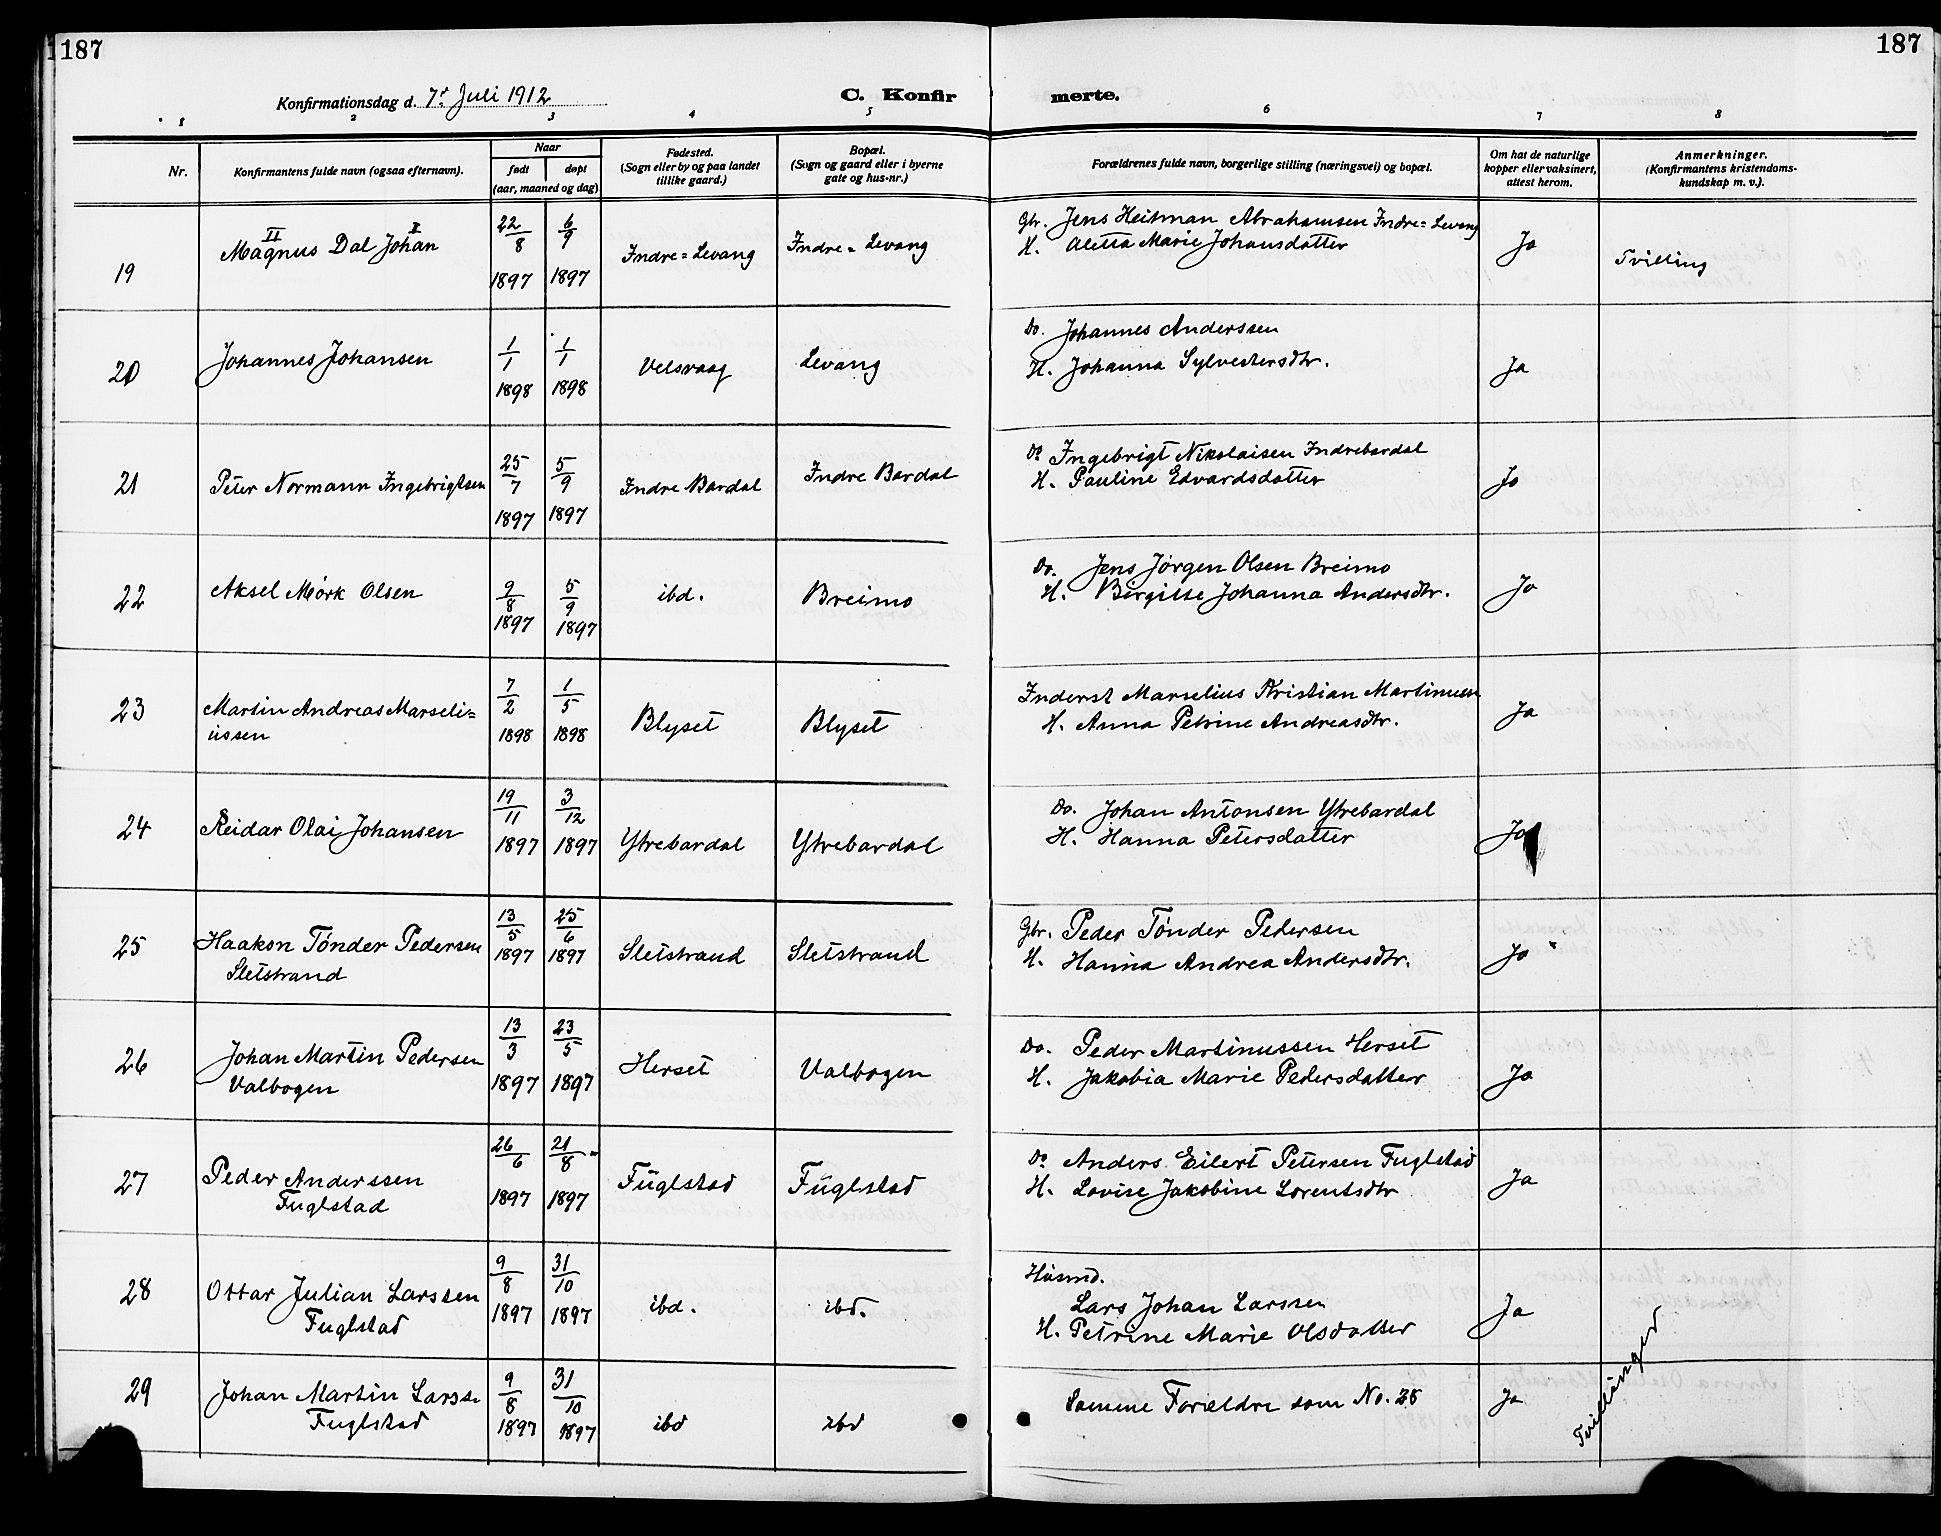 187
187
Konfirmationsdag d. 7de Juli 1912
C. Konfir merte.
1 2 3 4 5 6 7 8
Nr.
Konfirmantens fulde navn (ogsaa efternavn).
Naar
født døpt
(aar, maaned og dag)
Fødested.
(Sogn eller by og paa landet
tillike gaard.)
Bopæl.
(Sogn og gaard eller i byerne
gate og hus-nr.)
Forældrenes fulde navn, borgerlige stilling (næringsvei) og bopæl.
Om hat de naturlige
kopper eller vaksinert,
attest herom.
Anmerkninger.
(Konfirmantens kristendoms-
kundskap m. v.).
19 Magnus Dal Johan 22/8 1897 6/9 1897 Indre=Levang Indre=Levang
II I
Gbr. Jens Heitman Abrahamsen Indre=Levang
H. Aletta Marie Johansdatter Ja Tvilling
20 Johannes Johansen 1/1 1898 1/1 1898 Velsvaag Levang
Do. Johannes Anderssen
H. Johanna Sylvestersdtr. Ja
21 Peter Normann Ingebrigtsen 25/7 1897 5/9 1897 Indre Bardal Indre Bardal
Do Ingebrigt Nikolaisen Indrebardal
H. Pauline Edvardsdatter Ja
22 Aksel Mørk Olsen 9/8 1897 5/9 1897 ibd. Breimo
Do. Jens Jørgen Olsen Breimo
H. Birgitte Johanna Andersdtr. Ja
23 Martin Andreas Marseli=
ussen 7/2 1898 1/5 1898 Blyset Blyset
Inderst Marselius Kristian Martinusen
H. Anna Petrine Andreasdtr. Ja
24 Reidar Olai Johansen 19/11 1897 3/12 1897 Ytrebardal Ytrebardal
Do. Johan Antonsen Ytrebardal
H. Hanna Petersdatter Ja
25 Haakon Tönder Pedersen
Sletstrand 13/5 1897 25/6 1897 Sletstrand Sletstrand
Gbr. Peder Tönder Pedersen
H. Hanna Andrea Andersdtr. Ja
26 Johan Martin Pedersen
Valbogen 13/3 1897 23/5 1897 Herset Valbogen
Do. Peder Martinussen Herset
H. Jakobia Marie Pedersdatter Ja
27 Peder Anderssen
Fuglstad 26/6 1897 21/8 1897 Fuglstad Fuglstad
Do Anders Eilert Petersen Fuglstad
H. Lovise Jakobine Lorentsdtr Ja
28 Ottar Julian Larssen
Fuglstad 9/8 1897 31/10 1897 ibd. ibd.
Husmd.
Lars Johan Larssen
H. Petrine Marie Olsdatter Ja
29 Johan Martin Larsse
Fuglstad 9/8 1897 31/10 1897 ibd ibd
Samme Forældre som No. 28 Ja
Tvillinger